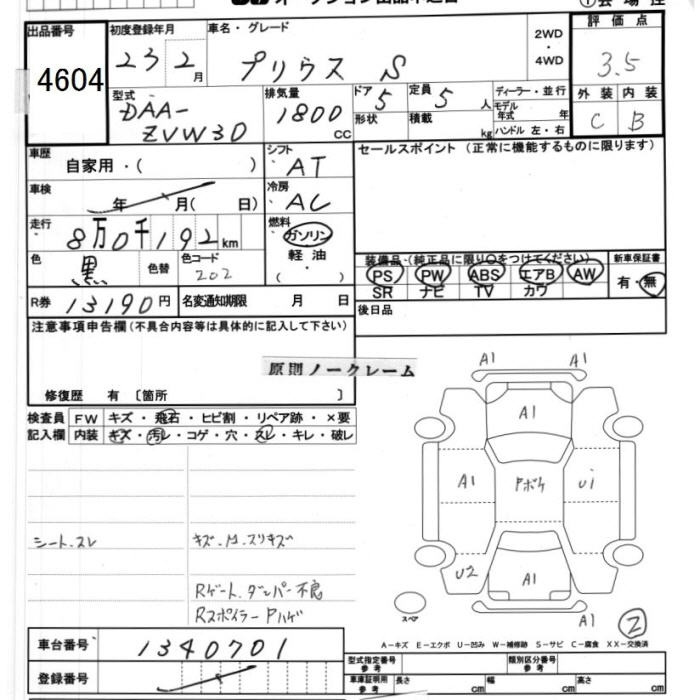 出品番号
4604
初度登録年月
23 2月
車名・グレード
プリウス S
2WD
・
4WD
評価点
3.5
外装 内装
C B
型式
DAA-
ZVW30
排気量
1800
CC
ドア 5
形状
定員 5 人
積載 kg
ディーラー・並行
モデル
年式 年
ハンドル 左・右
車歴
自家用・( )
シフト
AT
セールスポイント (正常に機能するものに限ります)
車検
年 月( 日)
冷房
AC
走行
8万0千192km
燃料
ガソリン
軽油
( )
色
黒
色替
色コード
202
装備品・(純正品に限り○をつけてください)
PS PW ABS エアB AW
SR ナビ TV カワ
新車保証書
有・無
R券 13190円
名変通知期限 月 日
後日品
注意事項申告欄(不具合内容等は具体的に記入して下さい)
原則ノークレーム
修復歴 有 〔箇所 〕
検査員
記入欄
FW キズ・飛石・ヒビ割・リペア跡・×要
内装 キズ・汚レ・コゲ・穴・スレ・キレ・破レ
シート.スレ
キズ.凹.スリキズ
Rゲート.ダンパー不良
Rスポイラー Pハゲ
A1 A1
A1
A1 Pボケ U1
U2 A1
A1
スペア
2
A-キズ E-エクボ U-凹み W-補修跡 S-サビ C-腐食 XX-交換済
車台番号 1340701
登録番号
型式指定番号
参考
類別区分番号
参考
車庫証明用
参考
長さ cm 幅 cm 高さ cm